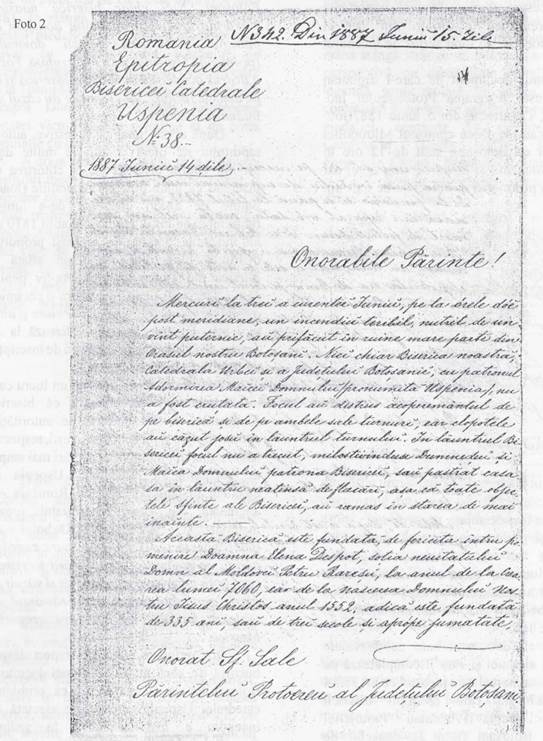 Foto 2
N 342. Din 1887 Iuniŭ 15. Zile
Romania
Epitropia
Bisericei Catedrale
Uspenia
N. 38.
1887 Iuniŭ 14 dile.
Onorabile Părinte!
Mercuri la trei a curentei Iunieĭ, pe la órele doĭ
post meridiane, un incendiŭ teribil, nutrit de un
vînt puternic, aŭ prifăcut în ruine mare parte din
Orașul nostru Botoșanĭ. Nici chiar Biserica noastră,
Catedrala Urbiĭ și a Județului Botoșaniĭ, cu patronul
Adormirea Maiciĭ Domnuluĭ /pronumita Uspenia/, nu
a fost cruțată. Focul aŭ distrus acoperemântul de
pe biserică și de pe ambele sale turnuri, ear clopotele
aŭ căzut josŭ în lăuntrul turnuluĭ. În lăuntrul Bi
sericeĭ focul nu a trecut, milostivinduse Dumnedeŭ si
Maica Domnuluĭ patrona Bisericeĭ, saŭ păstrat casa
sa în lăuntru neatinsă de flăcări, așa că toate obiec
tele sfinte ale Bisericeĭ, aŭ ramas in starea de mai
inainte.
Aceasta Biserică este fundată, de fericita intru po
menire Doamna Elena Despot, soția neuitatuluĭ
Domn al Moldoveĭ Petru Rareșŭ, la anul de la Cre
rea lumeĭ 7060, iar de la nascerea Domnuluĭ Nos
tru Iisus Christos anul 1552, adică este fundată
de 335 anĭ, saŭ de treĭ secole și aprópe jumatate,
Onorat Sf. Sale
Părinteluĭ Protoereu al Județuluĭ Botoșanĭ